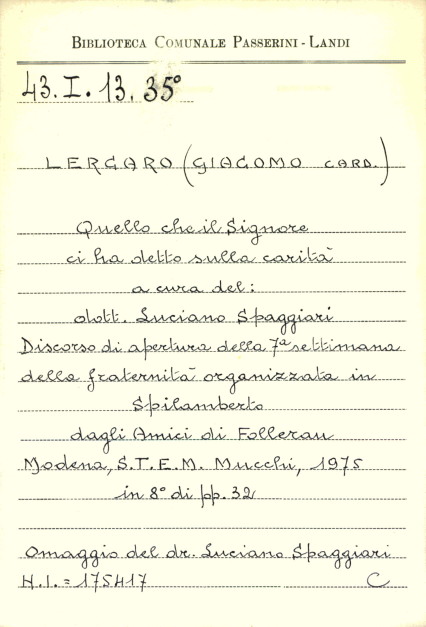 BIBLIOTECA COMUNALE PASSERINI - LANDI
43. I. 13. 35°
LERGARO (GIACOMO CARD.)
Quello che il Signore
ci ha detto sulla carità
a cura del:
dott. Luciano Spaggiari
Discorso di apertura della 7ª settimana
della fraternità organizzata in
Spilamberto
dagli Amici di Follerau
Modena, S.T.E.M. Mucchi, 1975
in 8° di pp. 32
Omaggio del dr. Luciano Spaggiari
N.I. = 175417 C